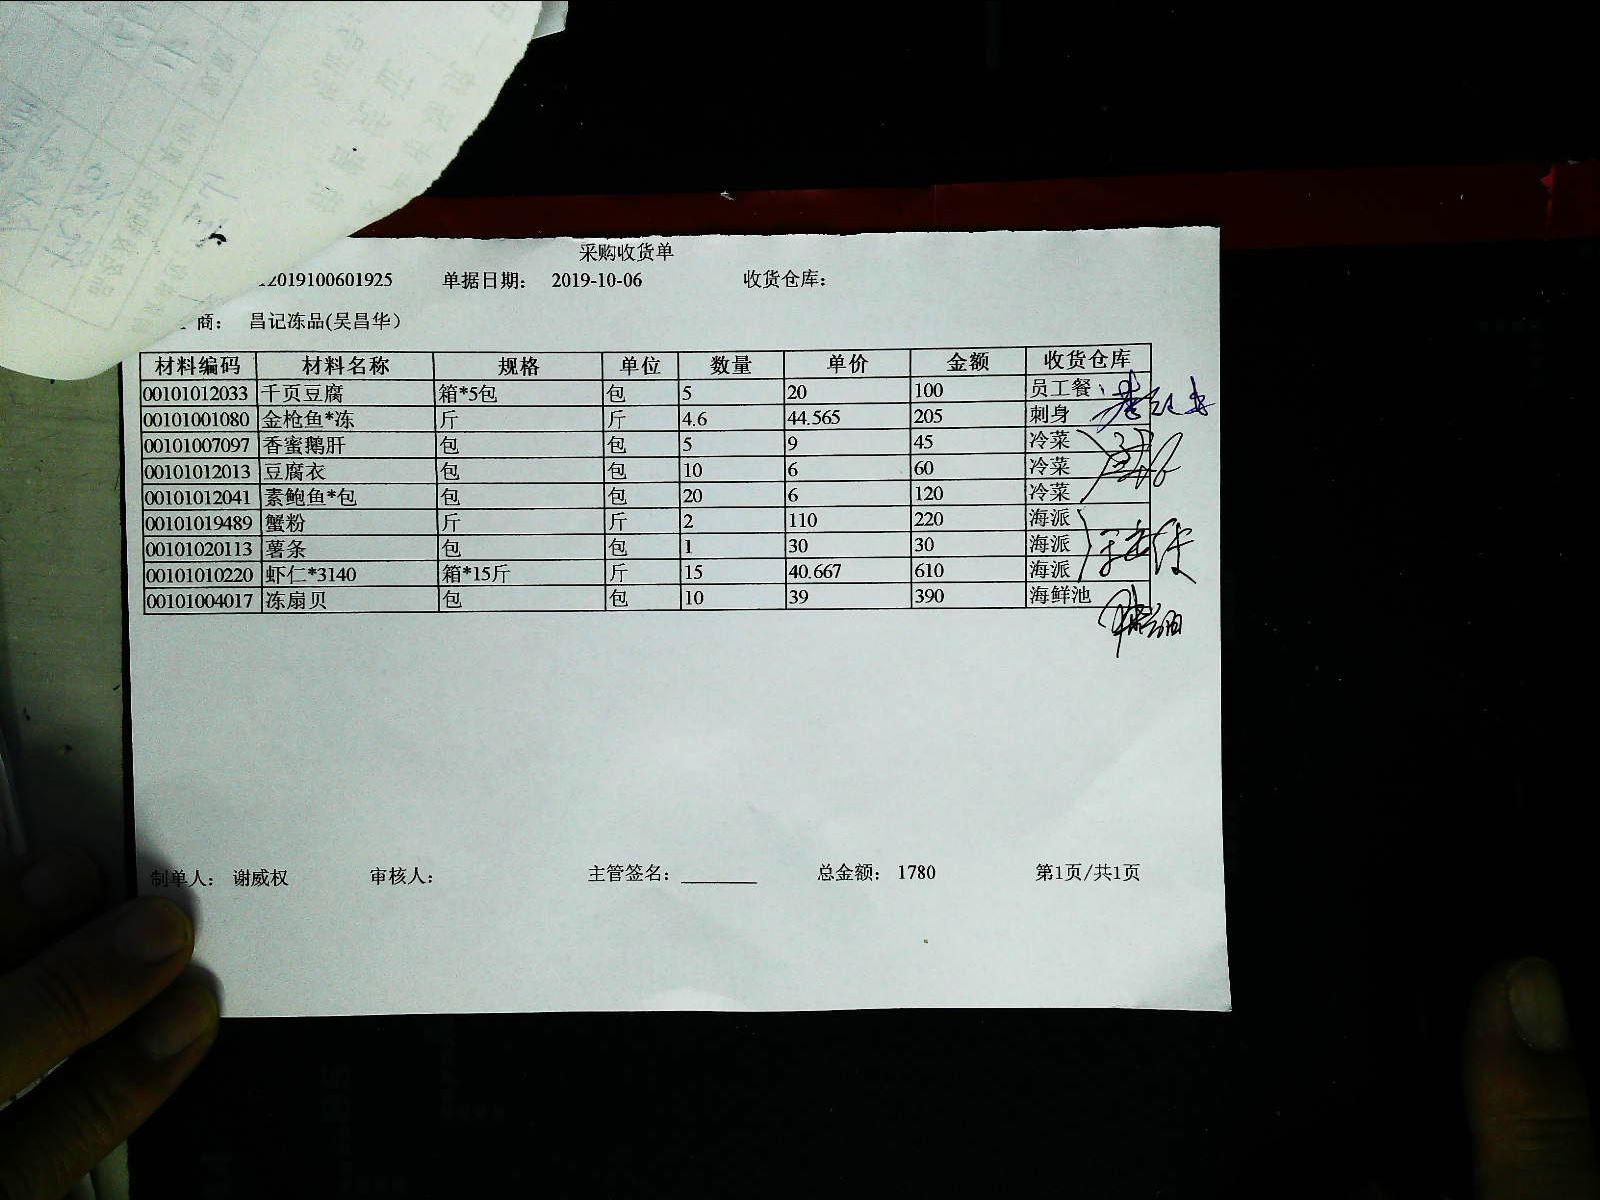 采购收货单
2019100601925 单据日期： 2019-10-06 收货仓库：
商： 昌记冻品(吴昌华)
材料编码 材料名称 规格 单位 数量 单价 金额 收货仓库
00101012033 千页豆腐 箱*5包 包 5 20 100 员工餐
00101001080 金枪鱼*冻 斤 斤 4.6 44.565 205 刺身
00101007097 香蜜鹅肝 包 包 5 9 45 冷菜
00101012013 豆腐衣 包 包 10 6 60 冷菜
00101012041 素鲍鱼*包 包 包 20 6 120 冷菜
00101019489 蟹粉 斤 斤 2 110 220 海派
00101020113 薯条 包 包 1 30 30 海派
00101010220 虾仁*3140 箱*15斤 斤 15 40.667 610 海派
00101004017 冻扇贝 包 包 10 39 390 海鲜池
制单人： 谢威权 审核人： 主管签名： 总金额： 1780 第1页/共1页